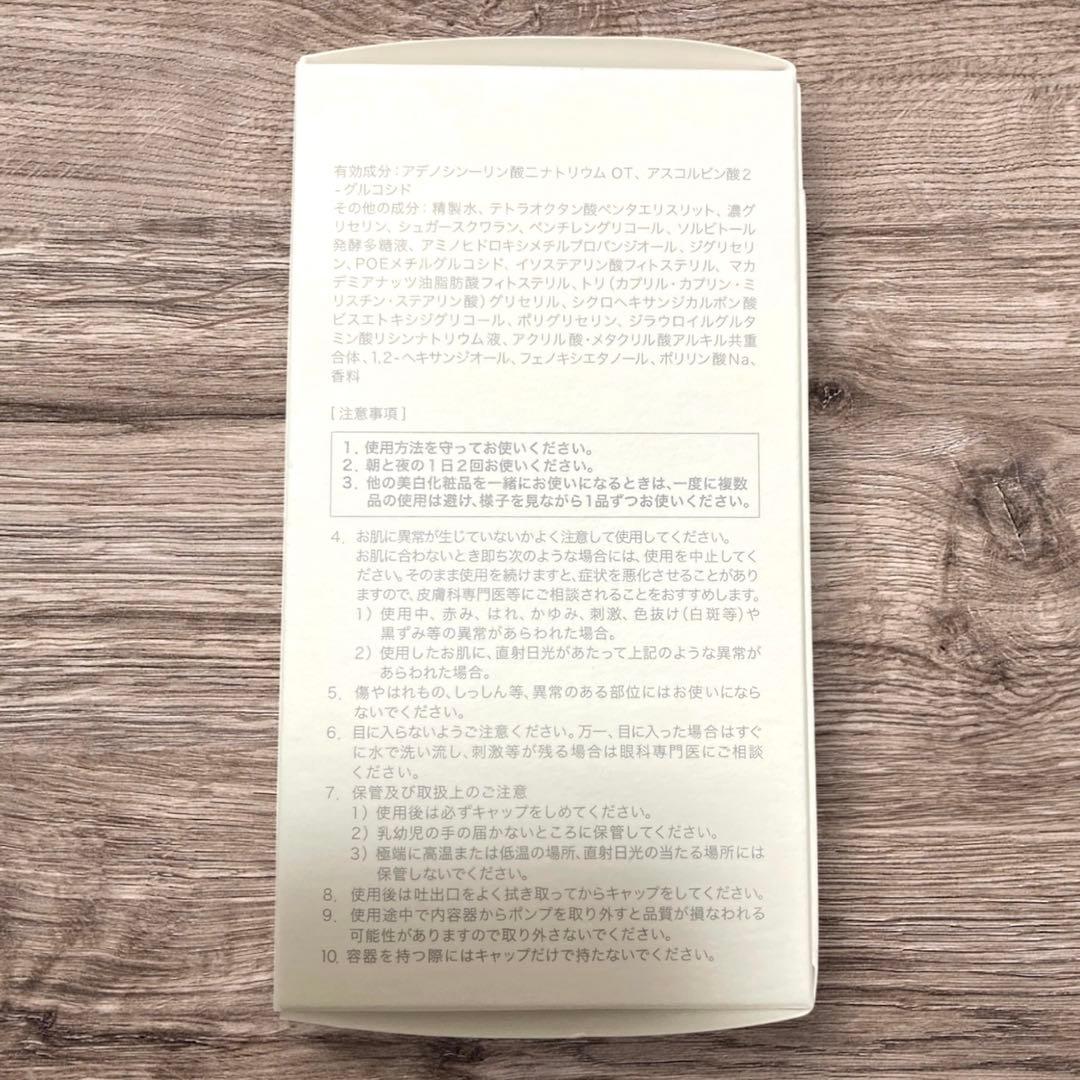 有効成分：アデノシン一リン酸二ナトリウム OT、アスコルビン酸2
-グルコシド
その他の成分：精製水、テトラオクタン酸ペンタエリスリット、濃グ
リセリン、シュガースクワラン、ペンチレングリコール、ソルビトール
発酵多糖液、アミノヒドロキシメチルプロパンジオール、ジグリセリ
ン、POEメチルグルコシド、イソステアリン酸フィトステリル、マカ
デミアナッツ油脂肪酸フィトステリル、トリ（カプリル・カプリン・ミ
リスチン・ステアリン酸）グリセリル、シクロヘキサンジカルボン酸
ビスエトキシジグリコール、ポリグリセリン、ジラウロイルグルタ
ミン酸リシンナトリウム液、アクリル酸・メタクリル酸アルキル共重
合体、1,2-ヘキサンジオール、フェノキシエタノール、ポリリン酸Na、
香料
［注意事項］
1. 使用方法を守ってお使いください。
2. 朝と夜の1日2回お使いください。
3. 他の美白化粧品を一緒にお使いになるときは、一度に複数
品の使用は避け、様子を見ながら1品ずつお使いください。
4. お肌に異常が生じていないかよく注意して使用してください。
お肌に合わないとき即ち次のような場合には、使用を中止してく
ださい。そのまま使用を続けますと、症状を悪化させることがあり
ますので、皮膚科専門医等にご相談されることをおすすめします。
1）使用中、赤み、はれ、かゆみ、刺激、色抜け（白斑等）や
黒ずみ等の異常があらわれた場合。
2）使用したお肌に、直射日光があたって上記のような異常が
あらわれた場合。
5. 傷やはれもの、しっしん等、異常のある部位にはお使いになら
ないでください。
6. 目に入らないようご注意ください。万一、目に入った場合はすぐ
に水で洗い流し、刺激等が残る場合は眼科専門医にご相談
ください。
7. 保管及び取扱上のご注意
1）使用後は必ずキャップをしめてください。
2）乳幼児の手の届かないところに保管してください。
3）極端に高温または低温の場所、直射日光の当たる場所には
保管しないでください。
8. 使用後は吐出口をよく拭き取ってからキャップをしてください。
9. 使用途中で内容器からポンプを取り外すと品質が損なわれる
可能性がありますので取り外さないでください。
10. 容器を持つ際にはキャップだけで持たないでください。